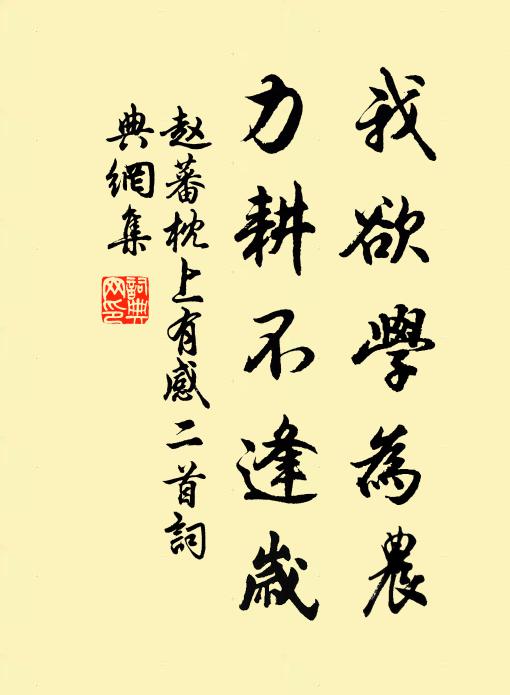 我欲學為農
力耕不逢歲
赵蕃枕上有感二首詞
典網集
詞典
网印